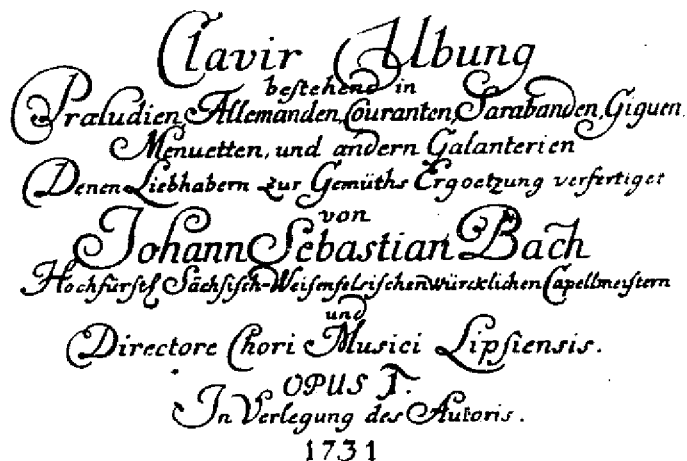 Clavir Ubung
bestehend in
Præludien, Allemanden, Couranten, Sarabanden, Giguen,
Menuetten, und andern Galanterien
Denen Liebhabern zur Gemüths Ergoetzung verfertiget
von
Johann Sebastian Bach
Hochfürstl Sächsisch-Weisenfelsischen würcklichen Capellmeistern
und
Directore Chori Musici Lipsiensis.
OPUS I.
In Verlegung des Autoris.
1731